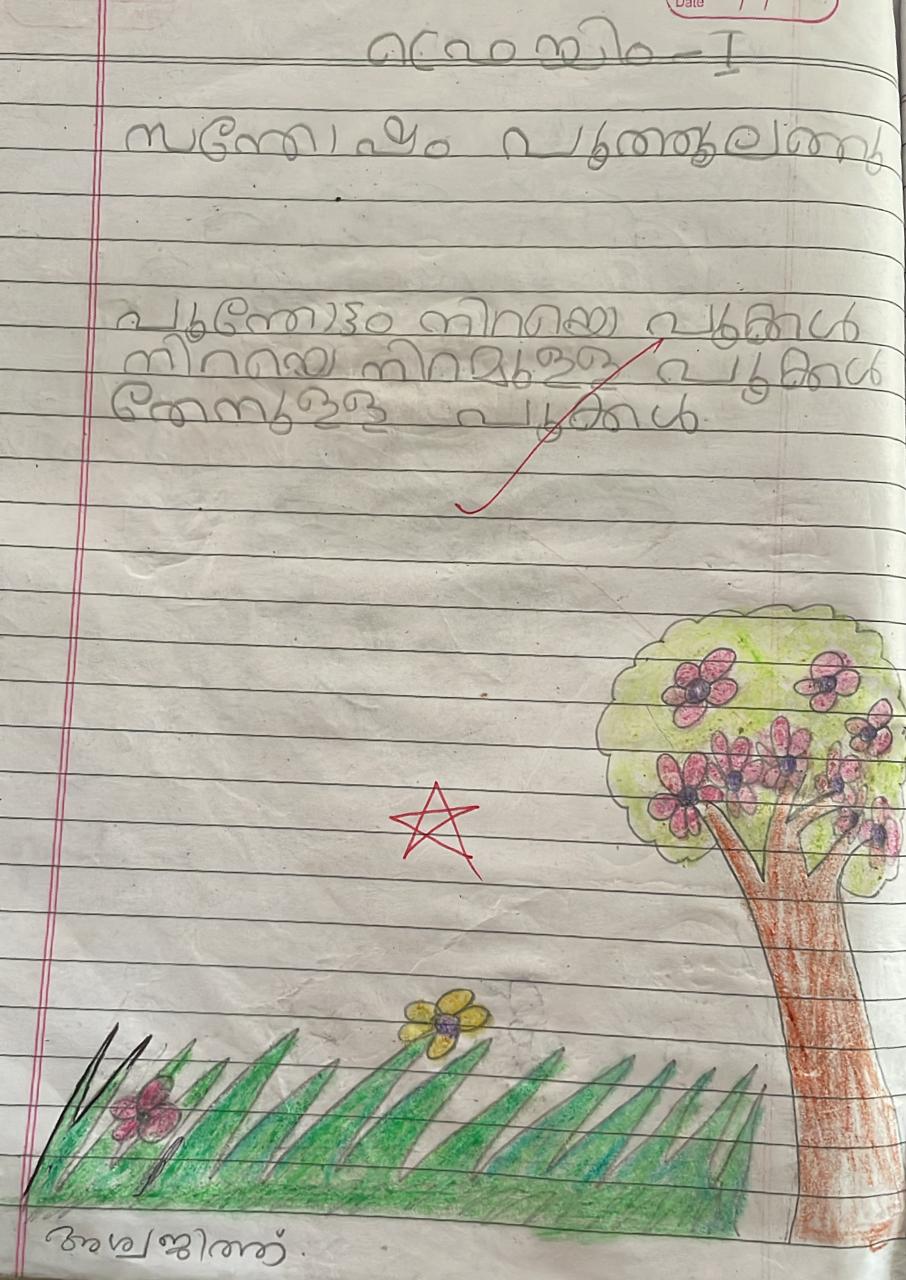 Date / /
പാഠം-I
സന്തോഷം പൂത്തുലഞ്ഞു
പൂന്തോട്ടം നിറയെ പൂക്കൾ
നിറയെ നിറമുള്ള പൂക്കൾ
തേനുള്ള പൂക്കൾ.
അശ്വജിത്ത്.